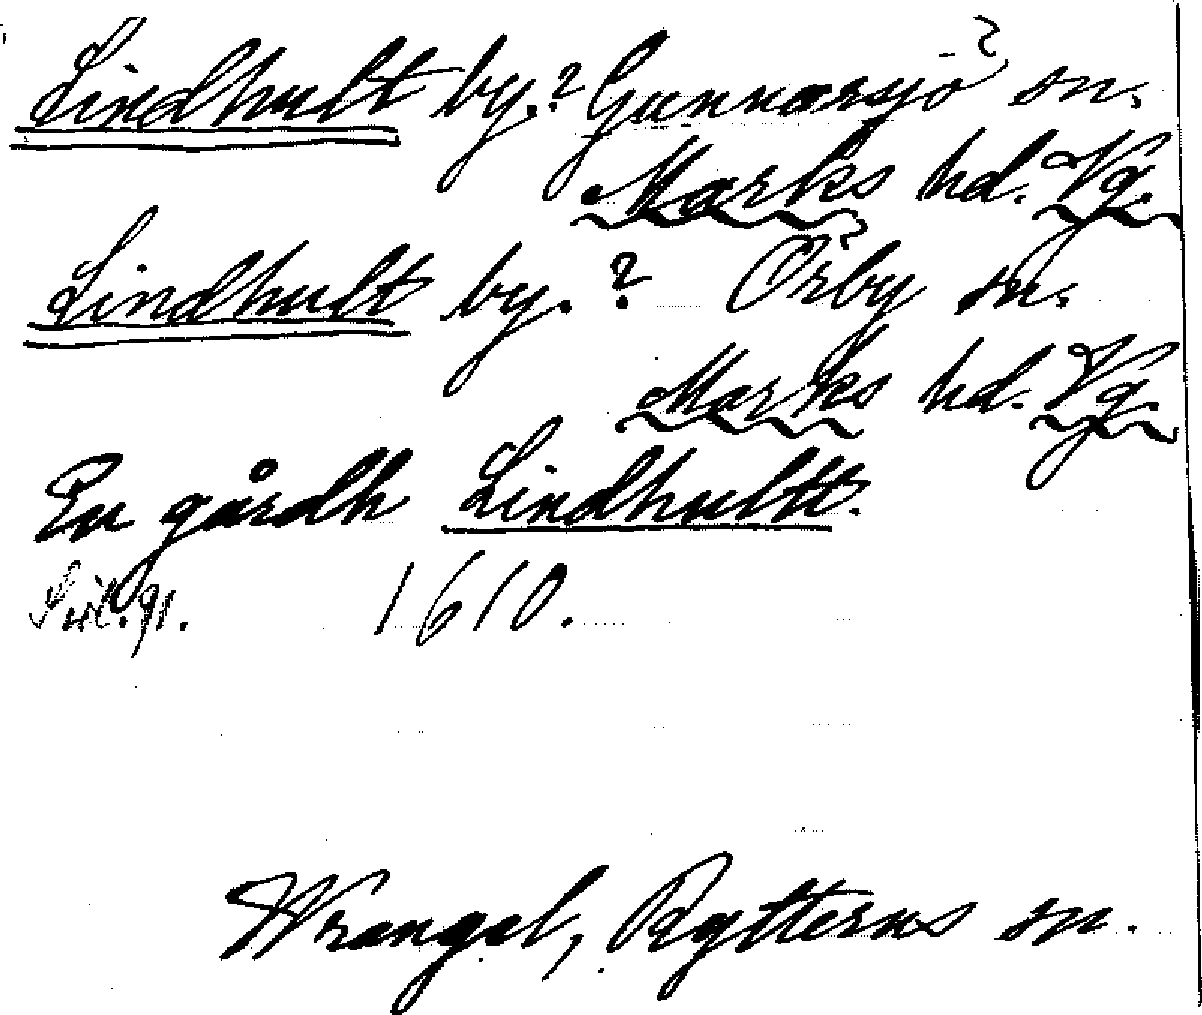 Lindhult by.? Gunnarsjö? sn.
Marks hd. Vg.
Lindhult by.? Örby? sn.
Marks hd. Vg.
En gårdh Lindhultt.
1610.
Wrangel, Rytterns sn.